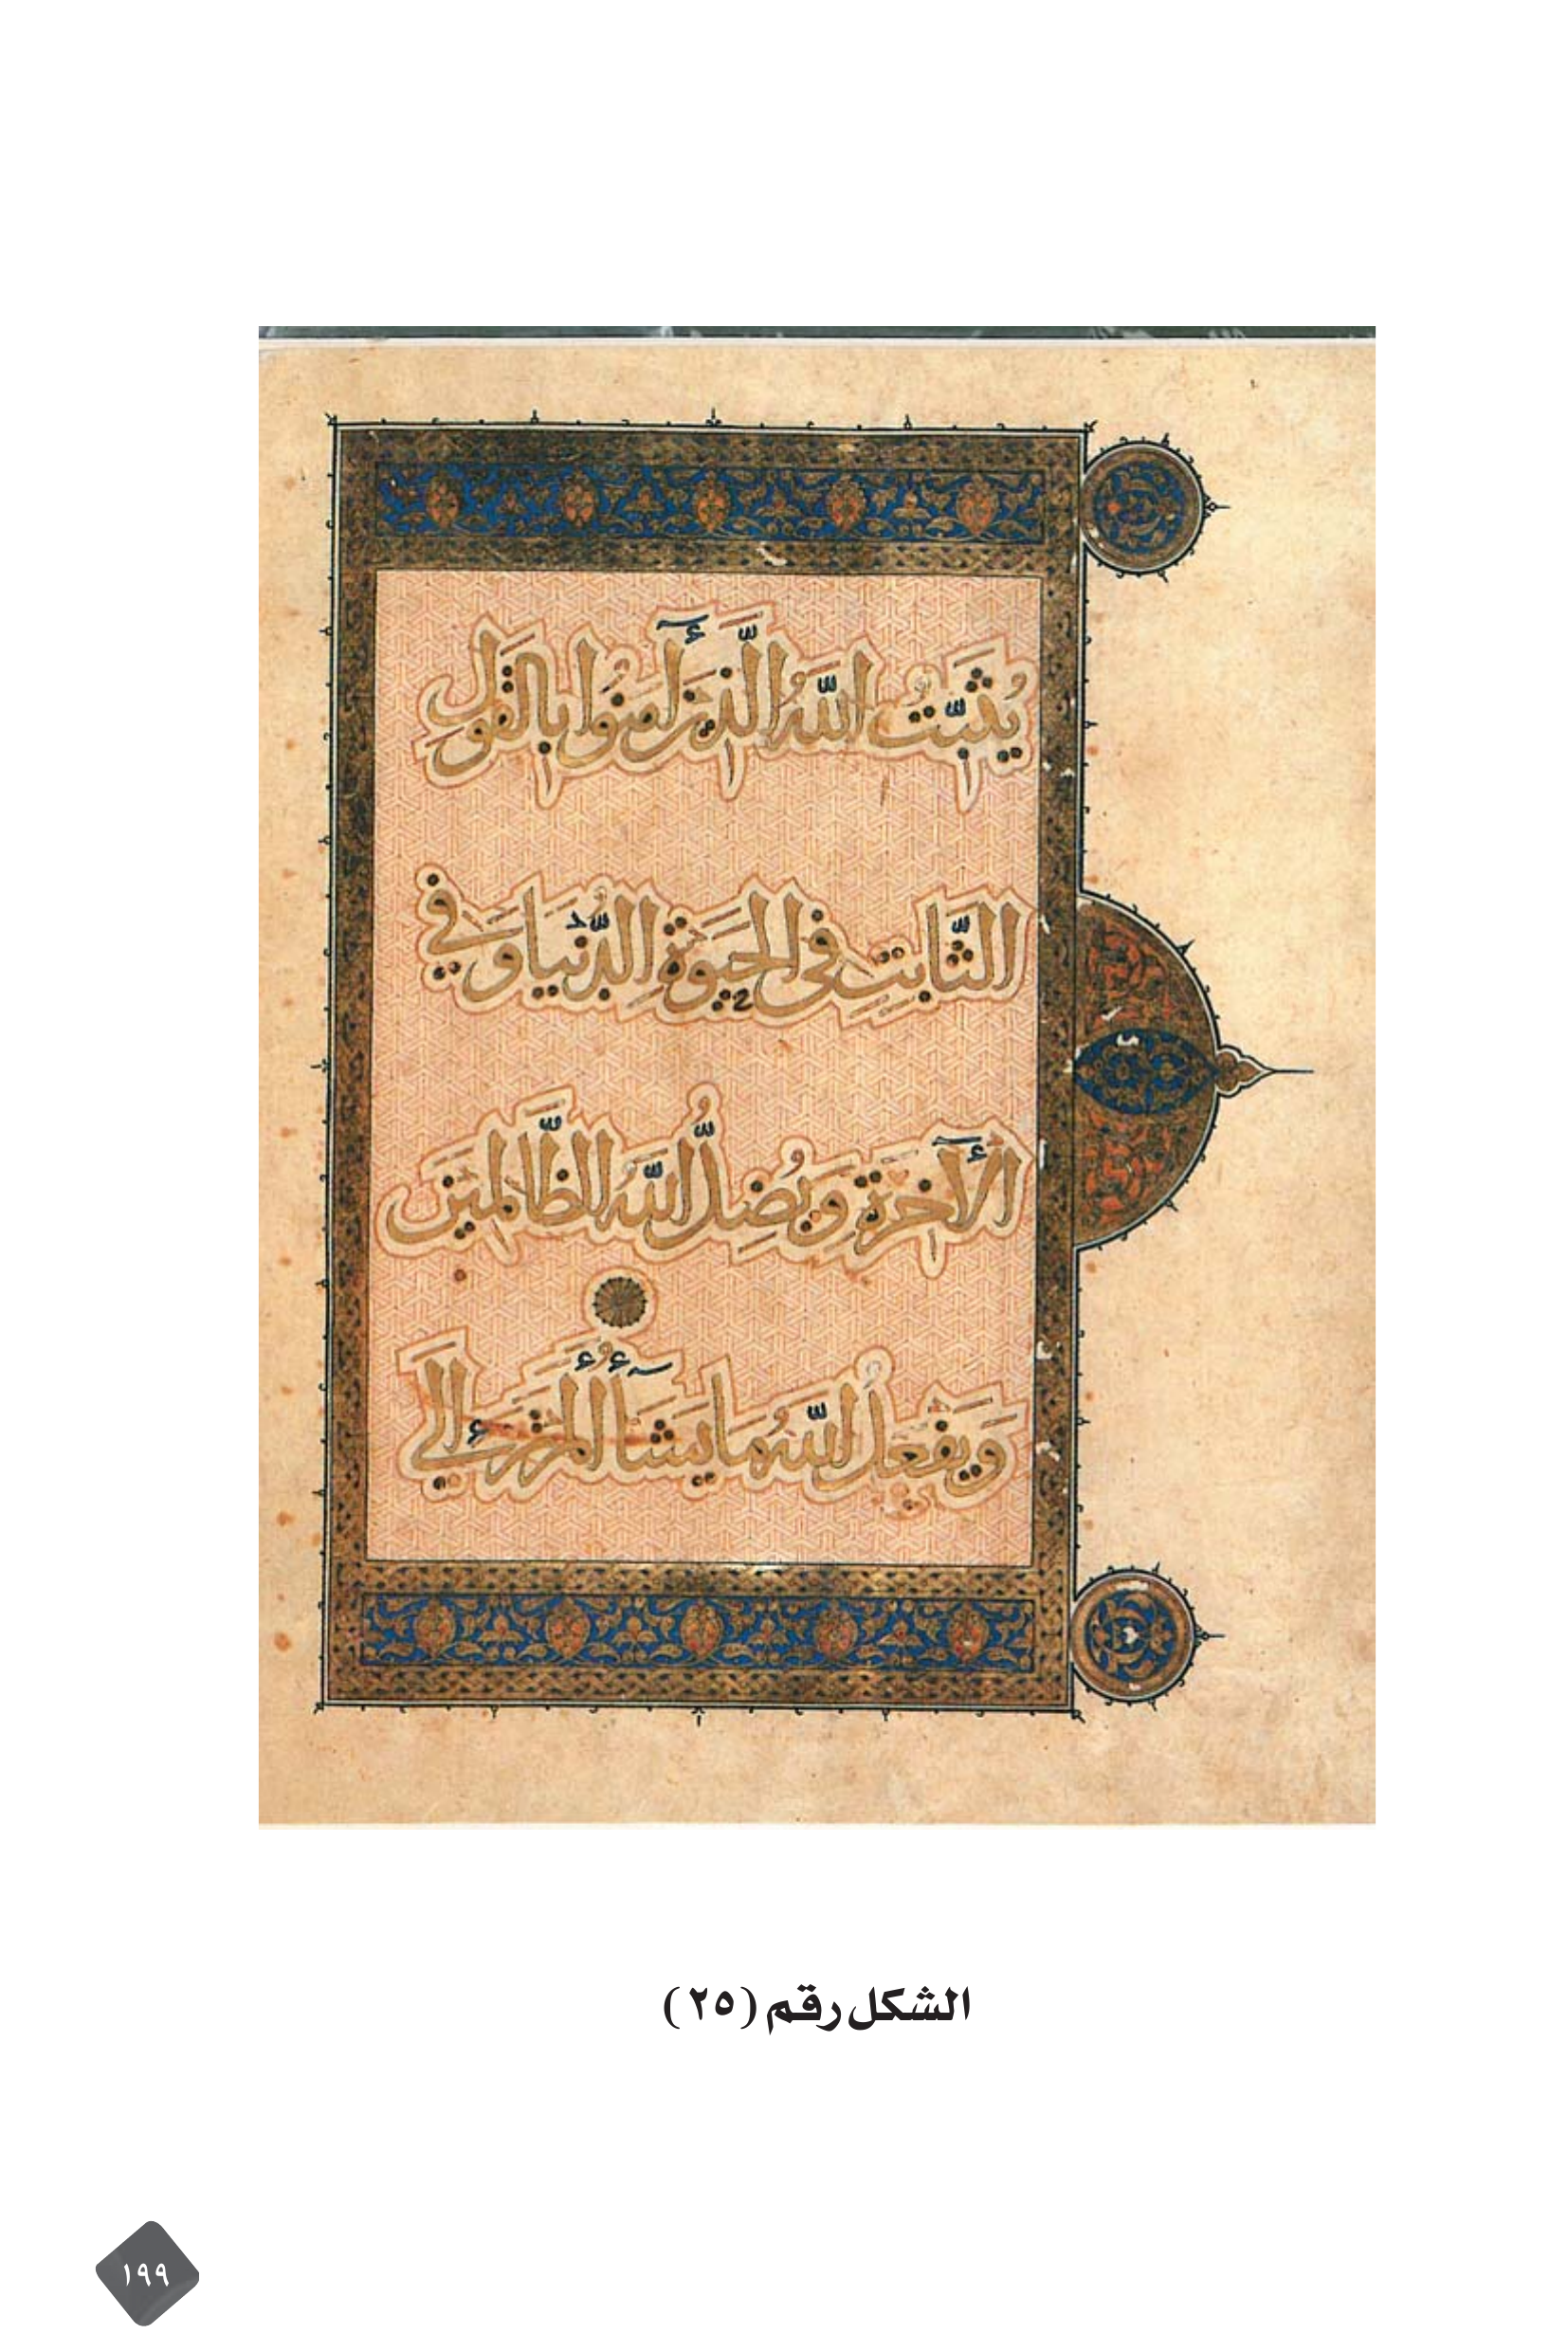 يُثَبِّتُ اللَّهُ الَّذِينَ آمَنُوا بِالْقَوْلِ
الثَّابِتِ فِي الْحَيَوةِ الدُّنْيَا وَفِي
الْآخِرَةِ وَيُضِلُّ اللَّهُ الظَّالِمِينَ
وَيَفْعَلُ اللَّهُ مَا يَشَآءُ أَلَمْ تَرَ إِلَى
الشكل رقم (٢٥)
١٩٩